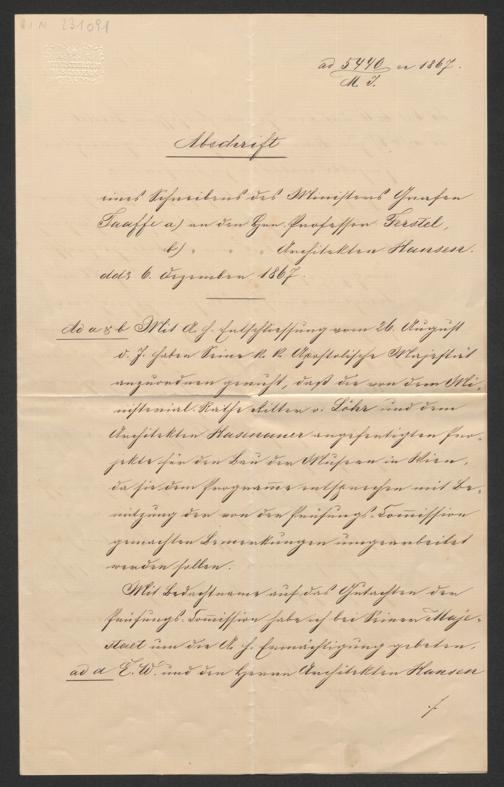 H.I.N. 231091
ad 5440 ex 1867.
M. I.
Abschrift
eines Schreibens des Ministers Grafen
Taaffe a) an den Hrn. Professor Ferstel,
b) " " " Architekten Hansen.
ddo 6. Dezember 1867.
Ad a & b Mit A. h. Entschliessung vom 26. August
d. J. haben Seine k. k. Apostolische Majestät
anzuordnen geruht, daß die von dem Mi-
nisterial-Rathe Ritter v. Löhr und dem
Architekten Hasenauer angefertigten Pro-
jekte für den Bau der Museen in Wien,
da sie dem Programme entsprechen mit Be-
nützung der von der Prüfungs-Commission
gemachten Bemerkungen umgearbeitet
werden sollen.
Mit Bedachtname auf das Gutachten der
Prüfungs-Commission habe ich bei Seiner Maje-
staet um die A. h. Ermächtigung gebeten,
ad a E. W. und den Herrn Architekten Hansen
./.